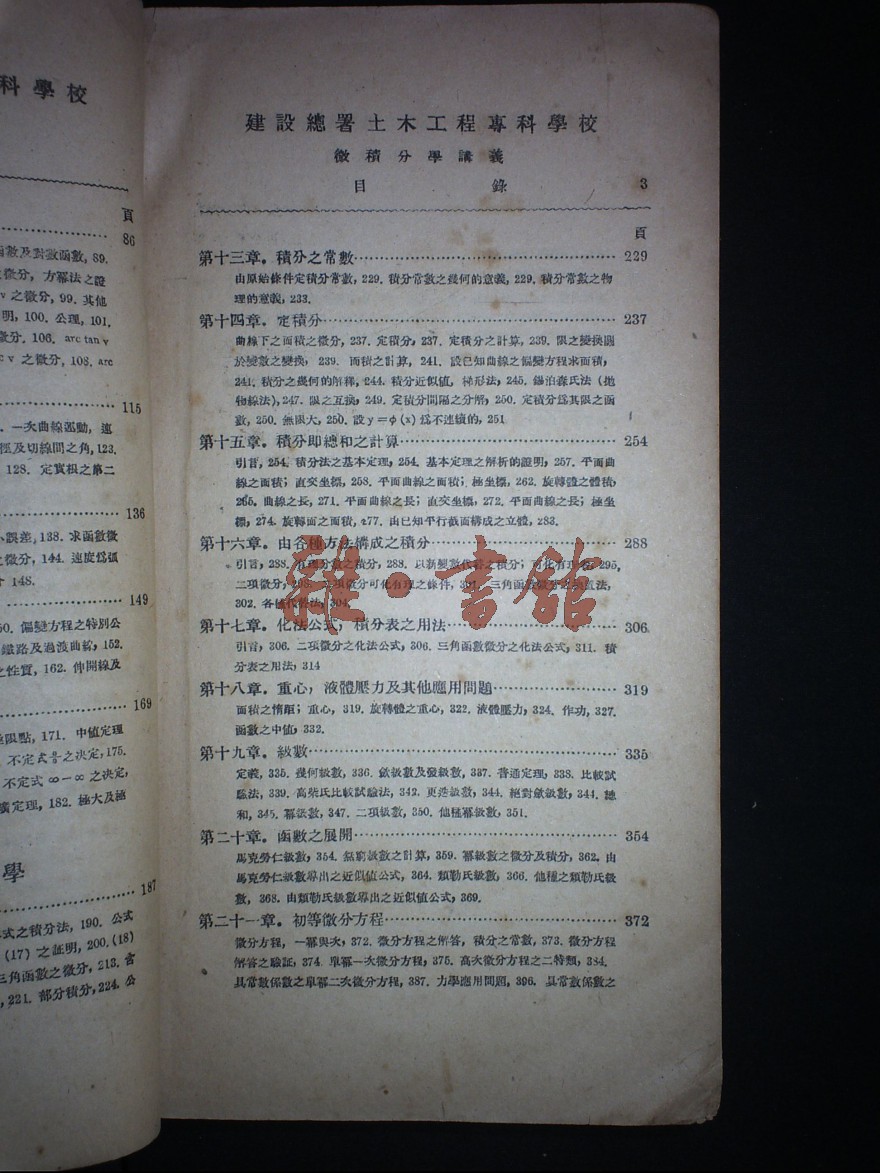 科學校
頁
86
函數及對數函數, 89.
微分, 方冪法之證
v 之微分, 99. 其他
明, 100. 公理, 101.
微分. 106. arc tan v
c v 之微分, 108. arc
115
一次曲線運動, 速
徑及切線間之角, 123.
128. 定實根之第二
136
小誤差, 138. 求函數微
之微分, 144. 速度爲弧
148.
149
50. 偏變方程之特別公
鐵路及過渡曲線, 152.
之性質, 162. 伸開線及
169
極限點, 171. 中値定理
不定式 之決定, 175.
不定式 ∞−∞ 之決定,
廣定理, 182. 極大及極
學
187
式之積分法, 190. 公式
(17) 之証明, 200. (18)
三角函數之微分, 213. 含
, 221. 部分積分, 224. 公
建設總署土木工程專科學校
微積分學講義
目 錄 3
頁
第十三章. 積分之常數 229
由原始條件定積分常數, 229. 積分常數之幾何的意義, 229. 積分常數之物
理的意義, 233.
第十四章. 定積分 237
曲線下之面積之微分, 237. 定積分, 237. 定積分之計算, 239. 限之變換關
於變數之變換, 239. 面積之計算, 241. 設已知曲線之偏變方程求面積,
241. 積分之幾何的解釋, 244. 積分近似値, 梯形法, 245. 錫泊森氏法 (拋
物線法), 247. 限之互換, 249. 定積分間隔之分解, 250. 定積分爲其限之函
數, 250. 無限大, 250. 設 y=φ(x) 爲不連續的, 251
第十五章. 積分即總和之計算 254
引言, 254. 積分法之基本定理, 254. 基本定理之解析的證明, 257. 平面曲
線之面積; 直交坐標, 258. 平面曲線之面積; 極坐標, 262. 旋轉體之體積,
265. 曲線之長, 271. 平面曲線之長; 直交坐標, 272. 平面曲線之長; 極坐
標, 274. 旋轉面之面積, 277. 由已知平行截面構成之立體, 283.
第十六章. 由各種方法構成之積分 288
引言, 288. 有理分數之積分, 288. 以新變數代替之積分; 可化有理者, 295,
二項微分, 298. 二項微分可化有理之條件, 301. 三角函數微分之換置法,
302. 各種代替法, 304.
第十七章. 化法公式, 積分表之用法 306
引言, 306. 二項微分之化法公式, 306. 三角函數微分之化法公式, 311. 積
分表之用法, 314
第十八章. 重心, 液體壓力及其他應用問題 319
面積之惰距; 重心, 319. 旋轉體之重心, 322. 液體壓力, 324. 作功, 327.
函數之中値, 332.
第十九章. 級數 335
定義, 335. 幾何級數, 336. 斂級數及發級數, 337. 普通定理, 338. 比較試
驗法, 339. 高柴氏比較試驗法, 342. 更迭級數, 344. 絕對斂級數, 344. 總
和, 345. 冪級數, 347. 二項級數, 350. 他種冪級數, 351.
第二十章. 函數之展開 354
馬克勞仁級數, 354. 無窮級數之計算, 359. 冪級數之微分及積分, 362. 由
馬克勞仁級數導出之近似値公式, 364. 類勒氏級數, 366. 他種之類勒氏級
數, 368. 由類勒氏級數導出之近似値公式, 369.
第二十一章. 初等微分方程 372
微分方程, 一冪與次, 372. 微分方程之解答, 積分之常數, 373. 微分方程
解答之驗証, 374. 單冪一次微分方程, 375. 高次微分方程之二特類, 384.
具常數係數之單冪二次微分方程, 387. 力學應用問題, 396. 具常數係數之
雜·書館